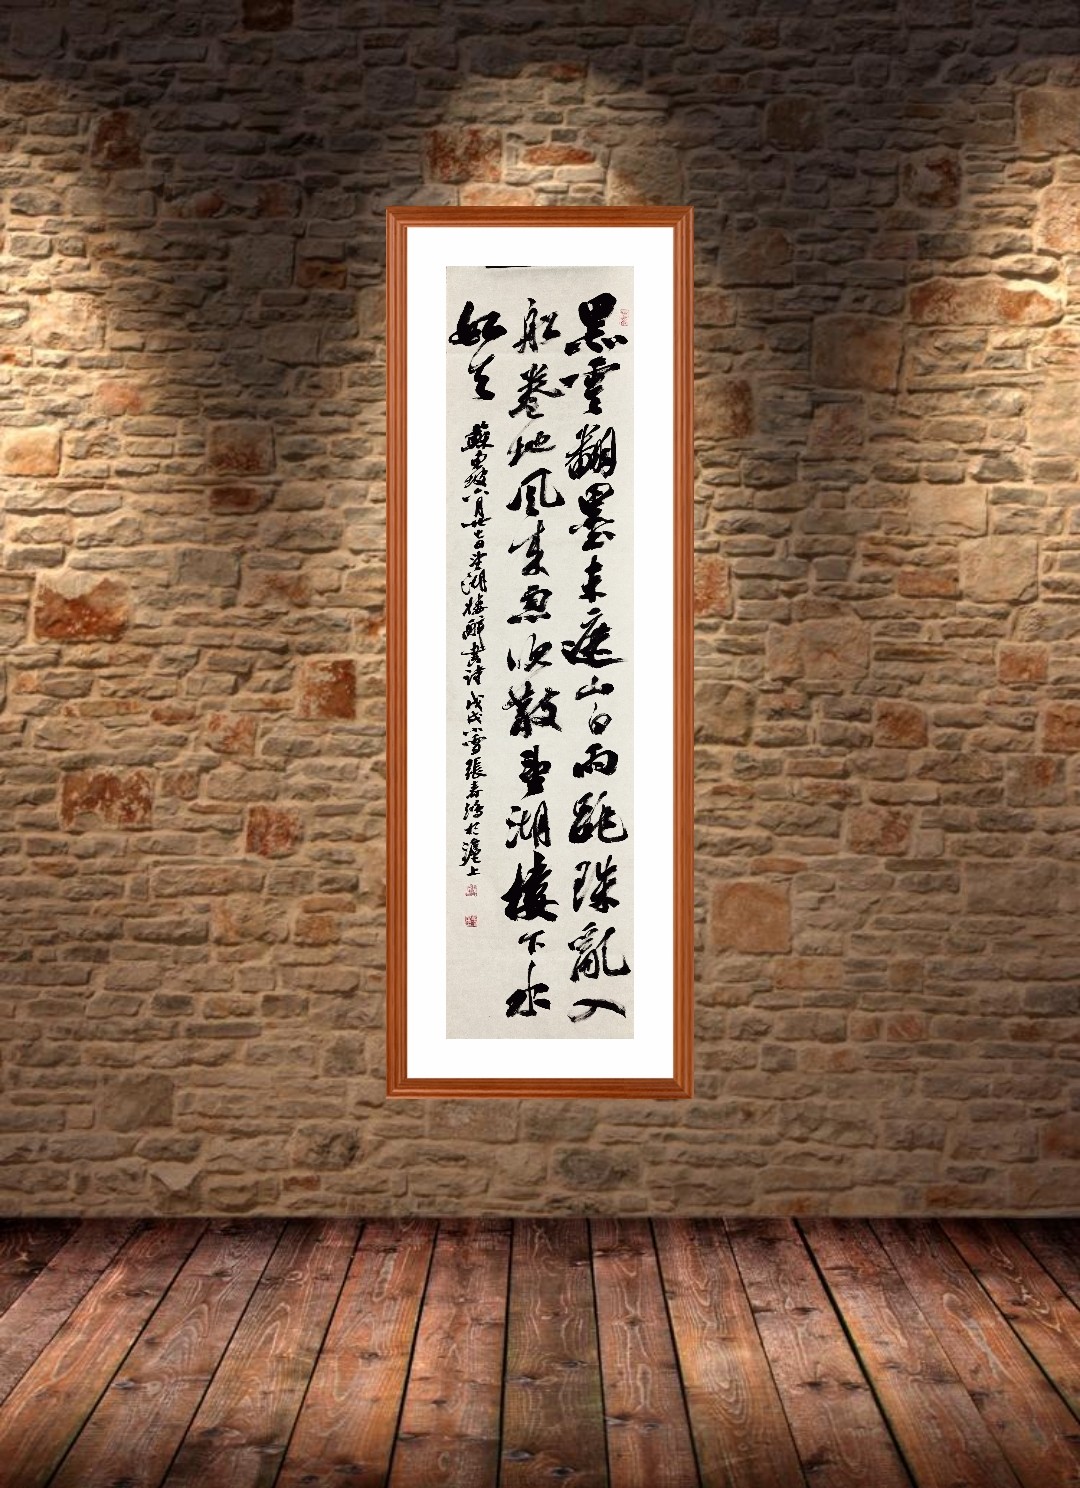 黑雲翻墨未遮山白雨跳珠亂入
船卷地風来忽吹散望湖樓下水
如天
蘇東坡六月廿七日望湖樓醉書詩 戊戌小雪張春鴻於滬上